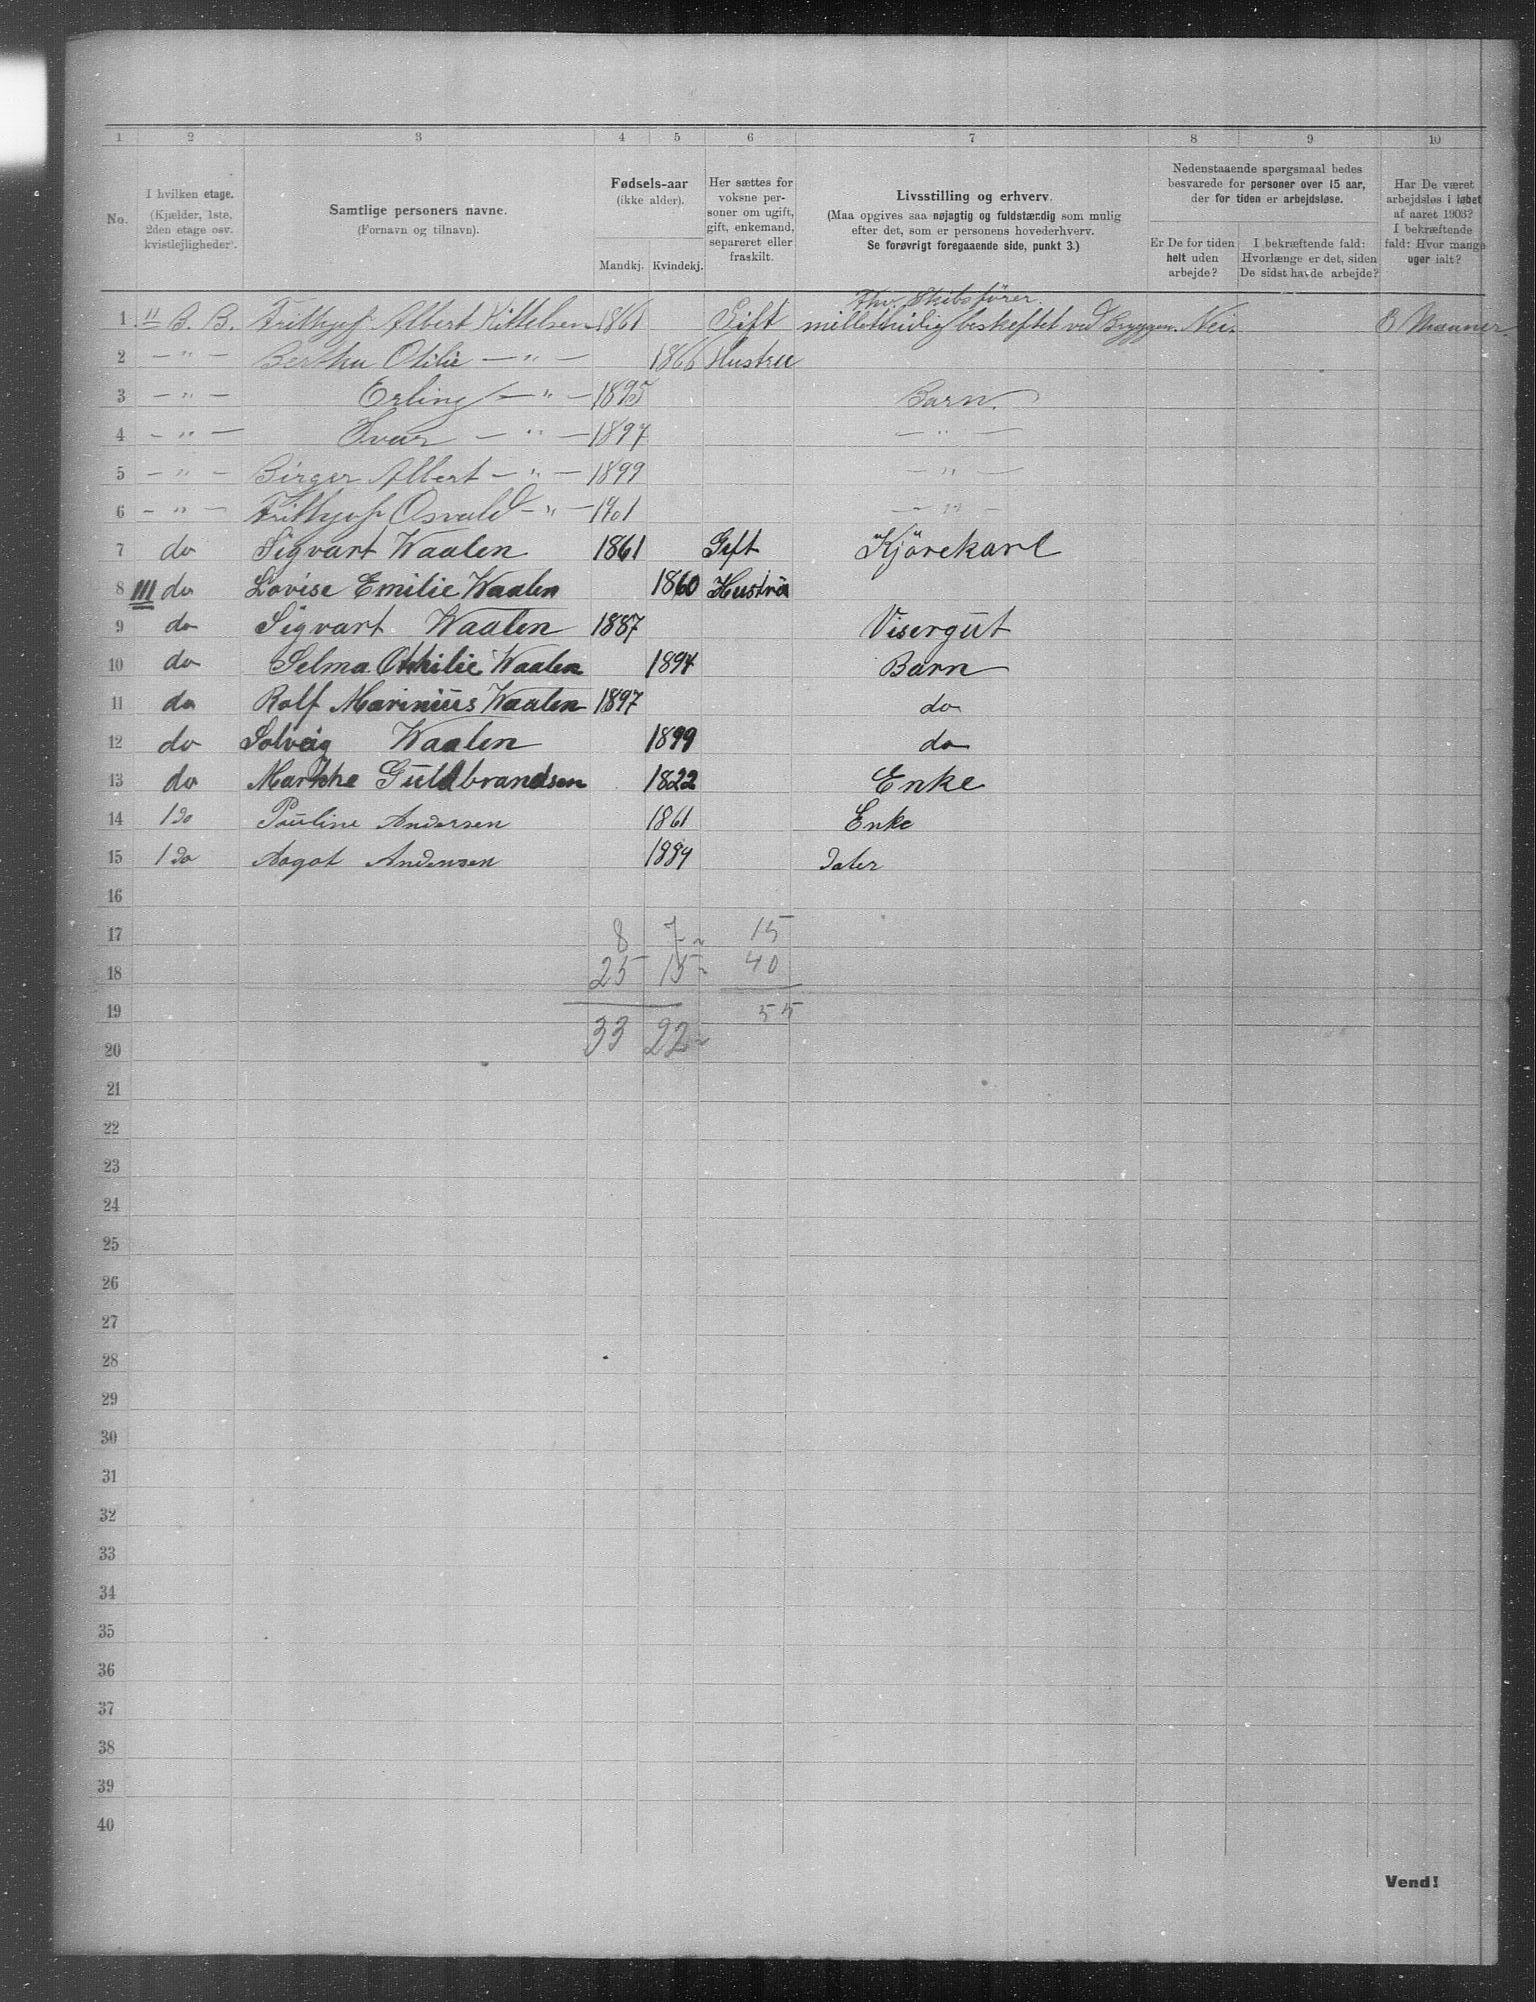 1 2 3 4 5 6 7 8 9 10
No.
I hvilken etage.
(Kjælder, 1ste,
2den etage osv.
kvistlejligheder).
Samtlige personers navne.
(Fornavn og tilnavn).
Fødsels-aar
(ikke alder).
Mandkj. Kvindekj.
Her sættes for
voksne per-
soner om ugift,
gift, enkemand,
separeret eller
fraskilt.
Livsstilling og erhverv.
(Maa opgives saa nøjagtig og fuldstændig som mulig
efter det, som er personens hovederhverv.
Se forøvrigt foregaaende side, punkt 3.)
Nedenstaaende spørgsmaal bedes
besvarede for personer over 15 aar,
der for tiden er arbejdsløse.
Er De for tiden
helt uden
arbejde?
I bekræftende fald:
Hvorlænge er det, siden
De sidst havde arbejde?
Har De været
arbejdsløs i løbet
af aaret 1903?
I bekræftende
fald: Hvor mange
uger ialt?
Fhv. Skibsfører.
1 II B. B. Frithjof Albert Kittelsen 1861 Gift beskeftet ved Bryggen. Nei. 3 Maaner.
2 — " — Bertha Otilie — " — 1866 Hustru
3 — " — Erling — " — 1895 Barn.
4 — " — Ivar — " — 1897 — " —
5 — " — Birger Albert — " — 1899 — " —
6 — " — Frithjof Osvald — " — 1901 — " —
7 do Sigvart Waalen 1861 Gift Kjörekarl
8 III do Lovise Emilie Waalen 1860 Hustru
9 do Sigvart Waalen 1887 Visergut
10 do Selma Othilie Waalen 1894 Barn
11 do Rolf Marinius Waalen 1897 do
12 do Solveig Waalen 1899 do
13 do Marthe Guldbrandsen 1822 Enke
14 1 do Pauline Andersen 1861 Enke
15 1 do Aagot Andersen 1884 Dater
16
17 8 7 15
18 25 15 40
19 55
20 33 22
21
22
23
24
25
26
27
28
29
30
31
32
33
34
35
36
37
38
39
40
Vend!